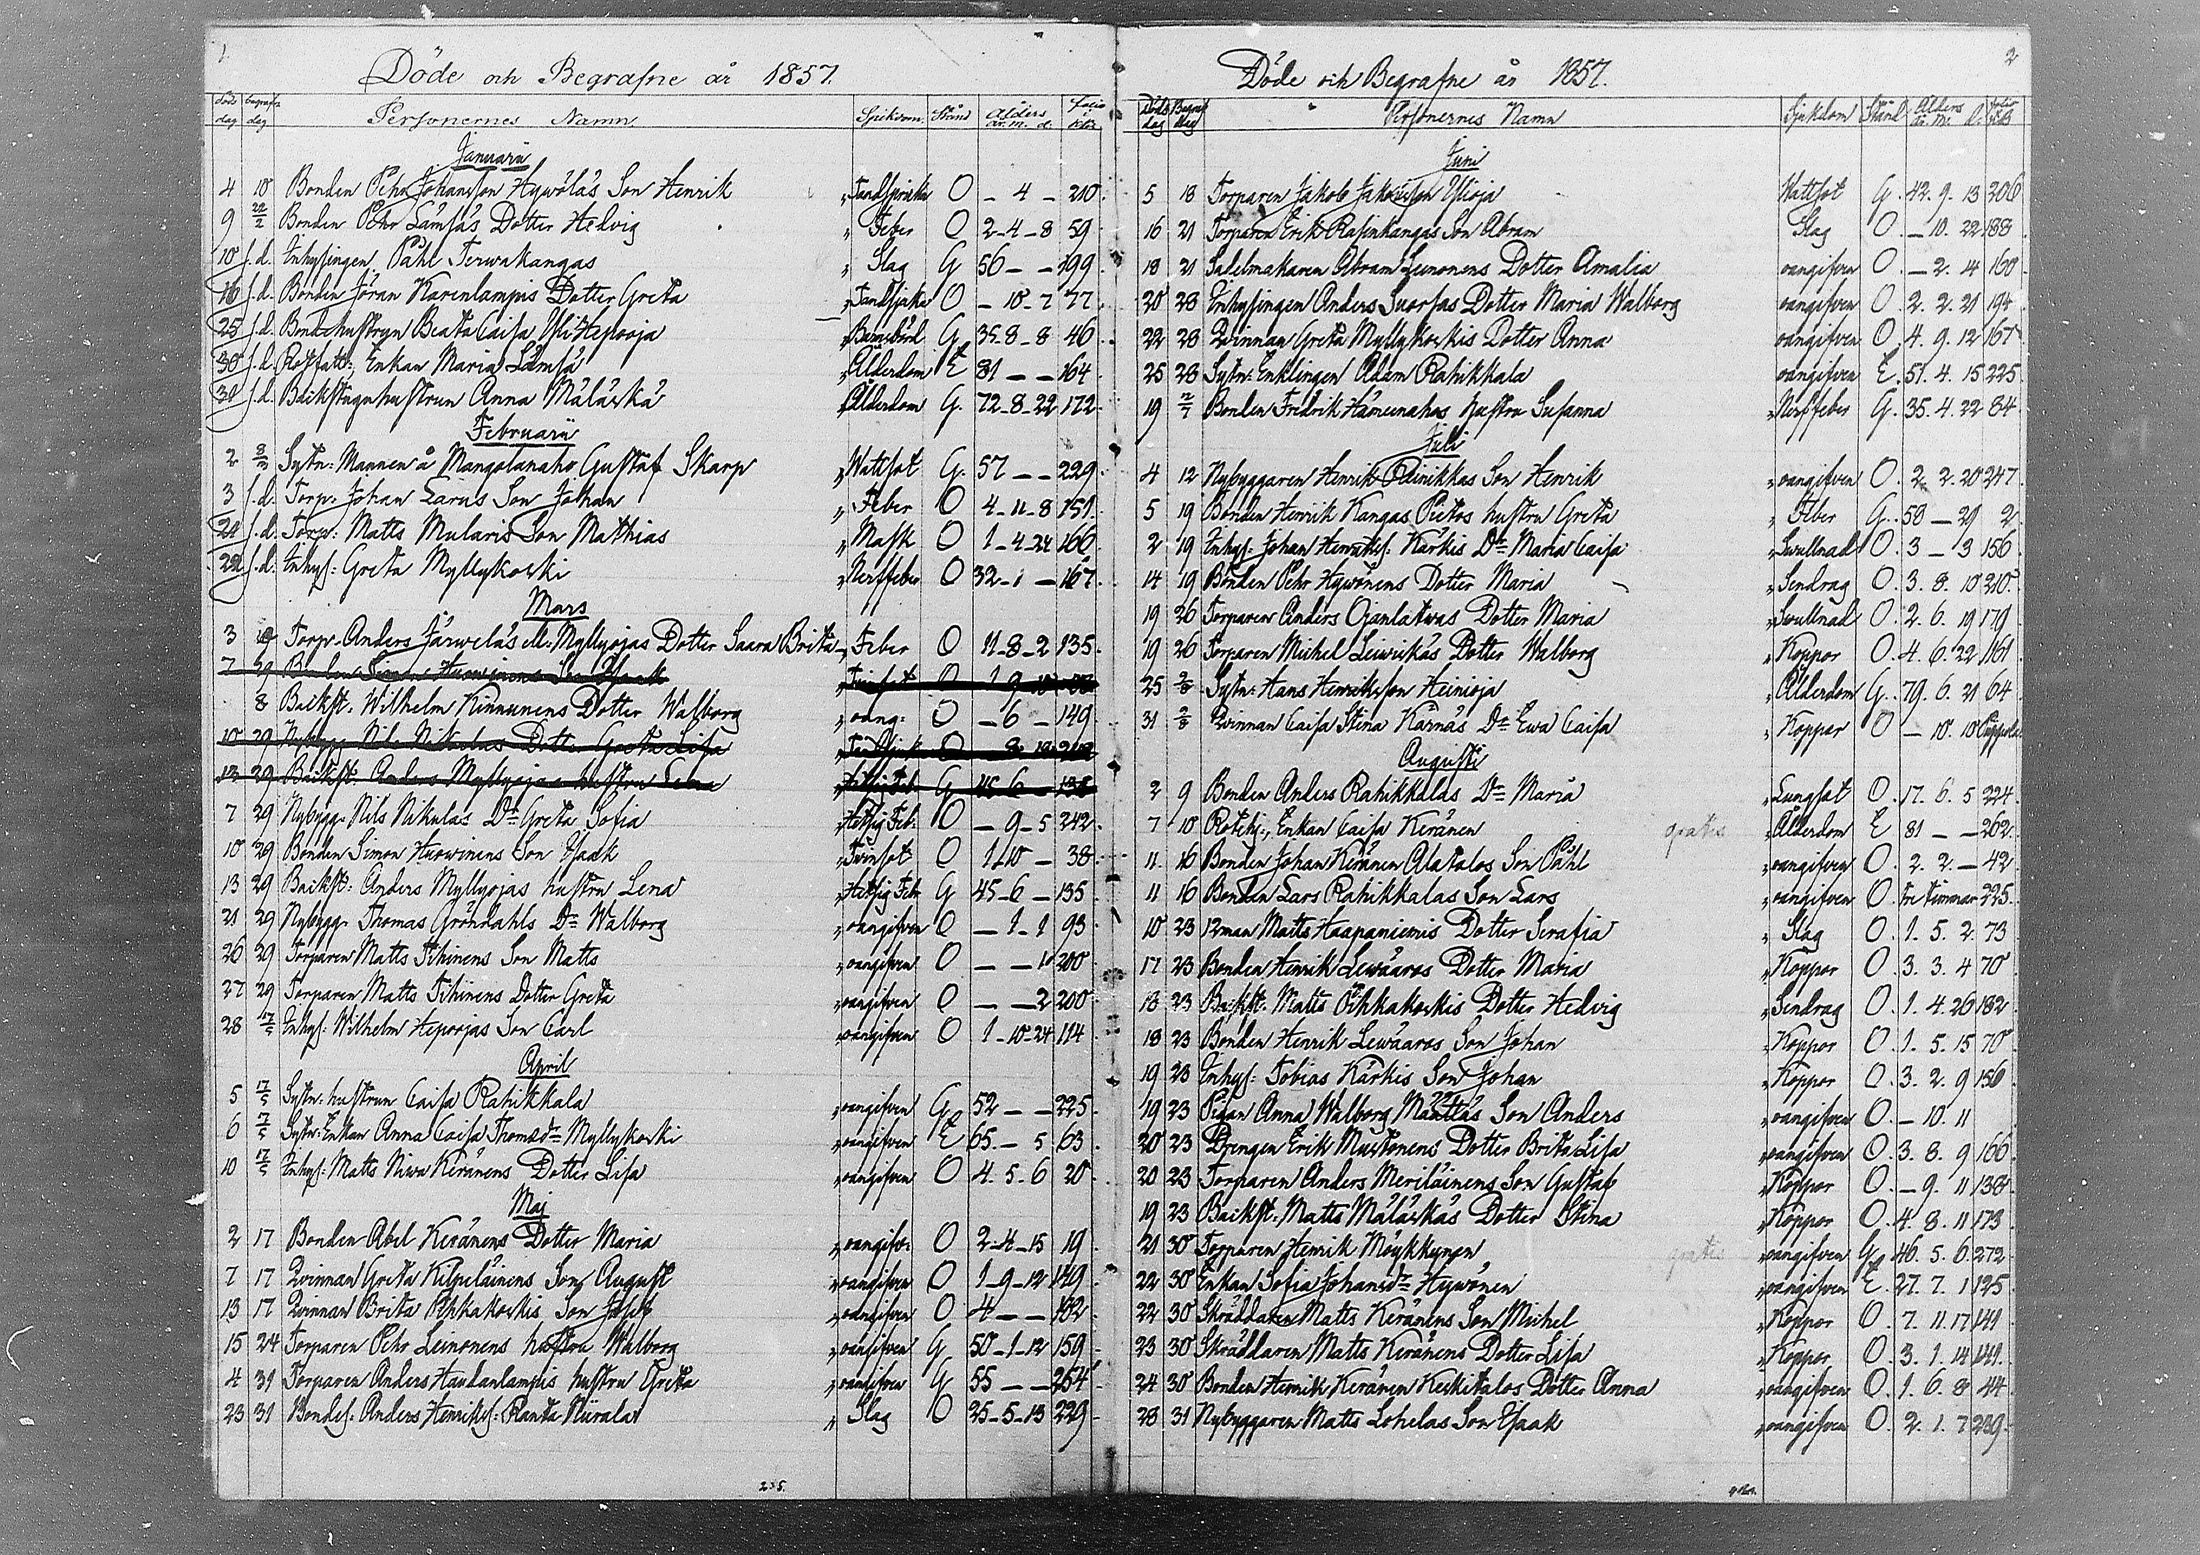 1
Döde och Begrafne år 1857.
döds dag begrafn dag Personernes Namn Sjukdom Stånd Ålders år. m. d. folio
Januarii
4 18 Bonden Pehr Johansson Hywöläs Son Henrik Tandspricka O – 4 – 210
9 22/2 Bonden Pehr Lämsäs Dotter Hedvig Feber O 2–4–8 59
10 s.d. Inhysingen Påhl Terwakangas Slag G 56 – – 199
16 s.d. Bonden Jöran Karenlampis Dotter Greta Tandsjuka O – 10–7 77
25 s.d. Bondehustrun Beata Caisa Yli Hepooja Barnsbörd G 35–8–8 46
30 s.d. Enkan Maria Lämsä Ålderdom E 81 – – 164
31 s.d. Bakstuguhustrun Anna Mäläskä Ålderdom G. 72–8–22 172
Februarii
2 8/3 Sytn: Mannen å Mangolanaho Gustaf Skarp Wattsot G. 57 – – 229
3 s.d. Torp: Johan Larus Son Johan Feber O 4–11–8 151
21 s.d. Torp: Matts Mularis Son Mathias Mask O 1–4–24 166
22 s.d. Inhys: Greta Myllykoski Nerffeber O 32–1– 167
Mars
3 Torp. Anders Järweläs ell. Myllyojas Dotter Saara Brita Feber O 11–8–2 135
7 29 Bonden Simon Huowinens Son Isaak Twinsot O 1 9
8 Bakst: Wilhelm Kinnunens Dotter Walborg oang: O –6– 149
10 29 Nybygg Nils Nikulas Dotter Greta Lisa O
13 29 Bakst: Anders Myllyojas hustru Lena Hettsig Feb. G 45 6 – 135
7 29 Nybygg. Nils Nikulas Dr Greta Sofia Hettsig Feb: O –9–5 242
10 29 Bonden Simon Huowinens Son Isaak Twinsot O 1–10– 38
13 29 Bakst: Anders Myllyojas hustru Lena Hettsig Feb G 45–6– 135
21 29 Nybygg. Thomas Gröndahls Dr Walborg oangifven O –1–1 93
26 29 Torparen Matts Tihinens Son Matts oangifven O – –1 200
27 29 Torparen Matts Tihinens Dotter Greta oangifven O – –2 200
28 17/5 Inhys: Wilhelm Hepoojas Son Carl oangifven O 1–10–24 114
April
5 17/5 Sytn: hustrun Caisa Rahikkala oangifven G 52 – – 225
6 17/5 Sytn: Enkan Anna Caisa Thomsdr Myllykoski oangifven E 65.– 5 63
10 17/5 Inhys: Matts Niwa Keränens Dotter Lisa oangifven O 4. 5. 6 20
Maj
2 17 Bonden Abel Keränens Dotter Maria oangifv: O 2–4–15 19
7 17 Qvinnan Greta Kilpeläinens Son August oangifven O 1–9–12 149
13 17 Qvinnan Brita Pihkakoskis Son Josef oangifven O 4 – – 182
15 24 Torparen Pehr Leinonens hustru Walborg oangifven G 50–1–12 159
4 31 Torparen Anders Haudanlampis hustru Greta oangifven G 55 – – 254
23 31 Bondes: Anders Henrikss: Ranta Niirala Slag O 25–5–13 229
235.
2
Döde och Begrafne år 1857.
Döds dag Begraf dag Personernes Namn Sjukdom Stånd Ålders år. m. d. folio
Juni
5 18 Torparen Jakob Jakobsson Ylioja Wattsot G. 42. 9. 13 206
16 21 Torparen Erik Rasinkangas Son Abram Slag O. – 10. 22 188
18 21 Sadelmakaren Abram Leinonens Dotter Amalia oangifven O. – 2. 14 160
20 28 Inhysingen Anders Suorsas Dotter Maria Walborg oangifven O. 2. 2. 21 194
22 28 Qvinnan Greta Myllykoskis Dotter Anna oangifven O. 4. 9. 12 167
25 28 Sytn: Enklingen Adam Rahikkala oangifven E. 51. 4. 15 225
19 Bonden Fredrik Hämeenahos hustru Susanna Nerffeber G. 35. 4. 22 84
Juli
4 12 Nybyggaren Henrik Heinikkas Son Henrik oangifven O. 2. 2. 20 247
5 19 Bonden Henrik Kangas Pietos hustru Greta Feber G. 58 – 29 2
2 19 Inhys. Johan Henrikss: Kärkis Dr Maria Caisa Swullnad O. 3 – 3 156
14 19 Bonden Pehr Hywönens Dotter Maria Sendrag O. 3. 8. 10 210
19 26 Torparen Anders Ojanlatwas Dotter Maria Swullnad O. 2. 6. 19 179
19 26 Torparen Michel Leiwiskäs Dotter Walborg Koppor O. 4. 6. 22 161
25 2/8 Sytn: Hans Henriksson Heinioja Ålderdom G. 79. 6. 21 64
31 2/8 Qvinnan Caisa Stina Kärnäs Dr Ewa Caisa Koppor O – 10. 10
Augusti
2 9 Bonden Anders Rahikkalas Dr Maria Lungsot O. 17. 6. 5 224
7 10 Rotehj: Enkan Caisa Keränen gratis Ålderdom E 81 – – 262
11 16 Bonden Johan Keränen Alatalos Son Påhl oangifven O. 2. 2. – 42
11 16 Bonden Lars Rahikkalas Son Lars oangifven O tre timmar 225
10 23 12man Matts Haapaniemis Dotter Serafia Slag O. 1. 5. 2. 73
17 23 Bonden Henrik Lewäaros Dotter Maria Koppor O. 3. 3. 4 70
18 23 Bakst: Matts Pihkakoskis Dotter Hedvig Sendrag O. 1. 4. 26 182
18 23 Bonden Henrik Lewäaros Son Johan Koppor O. 1. 5. 15 70
19 23 Inhys: Tobias Kärkis Son Johan Koppor O. 3. 2. 9 156
19 23 Pigan Anna Walborg Son Anders oangifven O – 10. 11
20 23 Drengen Erik Mustonens Dotter Brita Lisa oangifven O 3. 8. 9 166
20 23 Torparen Anders Meriläinens Son Gustaf Koppor O. – 9. 11 138
19 23 Bakst: Matts Mäläskäs Dotter Stina Koppor O. 4. 8. 11 173
21 30 Torparen Henrik Möykkynen gratis oangifven G. 46. 5. 6. 272
22 30 Enkan Sofia Johansdr Hywönen oangifven E. 27. 7. 1 125
22 30 Skräddaren Matts Keränens Son Michel Koppor O. 7. 11. 17 141
23 30 Skräddaren Matts Keränens Dotter Lisa Koppor O. 3. 1. 14 141
24 30 Bonden Henrik Keränen Keskitalos Dotter Anna oangifven O. 1. 6. 8 44
28 31 Nybyggaren Matts Lohelas Son Isaak oangifven O. 2. 1. 7 239